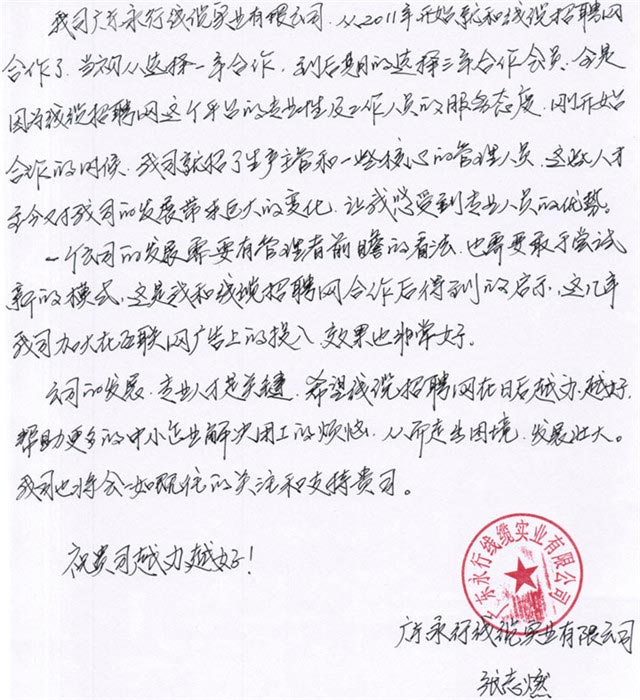 我司广东永行线缆实业有限公司，从2011年开始就和线缆招聘网
合作了，当初从选择一年合作，到后期的选择三年合作会员，全是
因为线缆招聘网这个平台的专业性及工作人员的服务态度，刚开始
合作的时候，我司就招了生产主管和一些核心的管理人员，这些人才
至今对我司的发展带来巨大的变化，让我感受到专业人员的优势。
一个公司的发展需要有管理者前瞻的看法，也需要敢于尝试
新的模式，这是我和线缆招聘网合作后得到的启示，这几年
我司加大在互联网广告上的投入，效果也非常好。
公司的发展，专业人才是关键，希望线缆招聘网在日后越办越好，
帮助更多的中小企业解决用工的烦恼，从而走出困境，发展壮大。
我司也将会一如既往的关注和支持贵司。
祝贵司越办越好！
广东永行线缆实业有限公司
广东永行线缆实业有限公司
张志燃